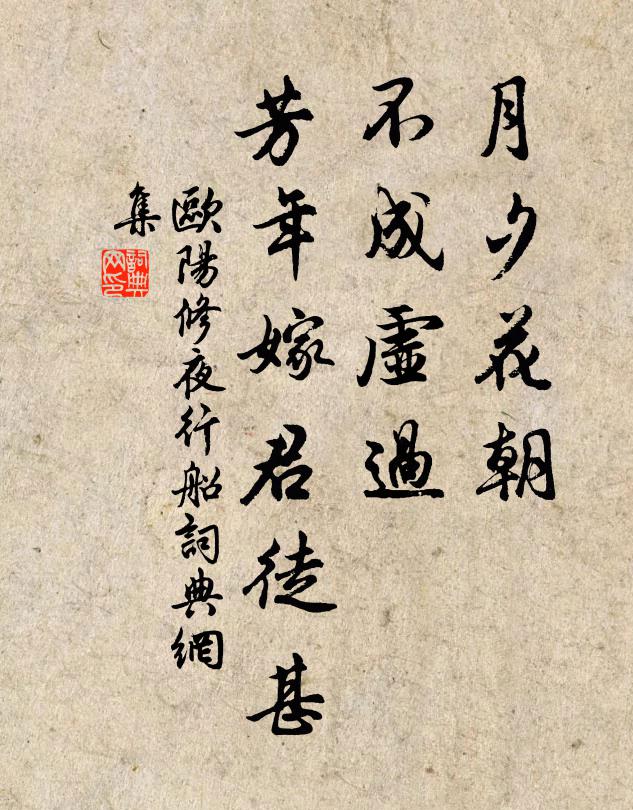 月夕花朝
不成虛過
芳年嫁君徒甚
歐陽修夜行船詞典網
集
詞典
网印